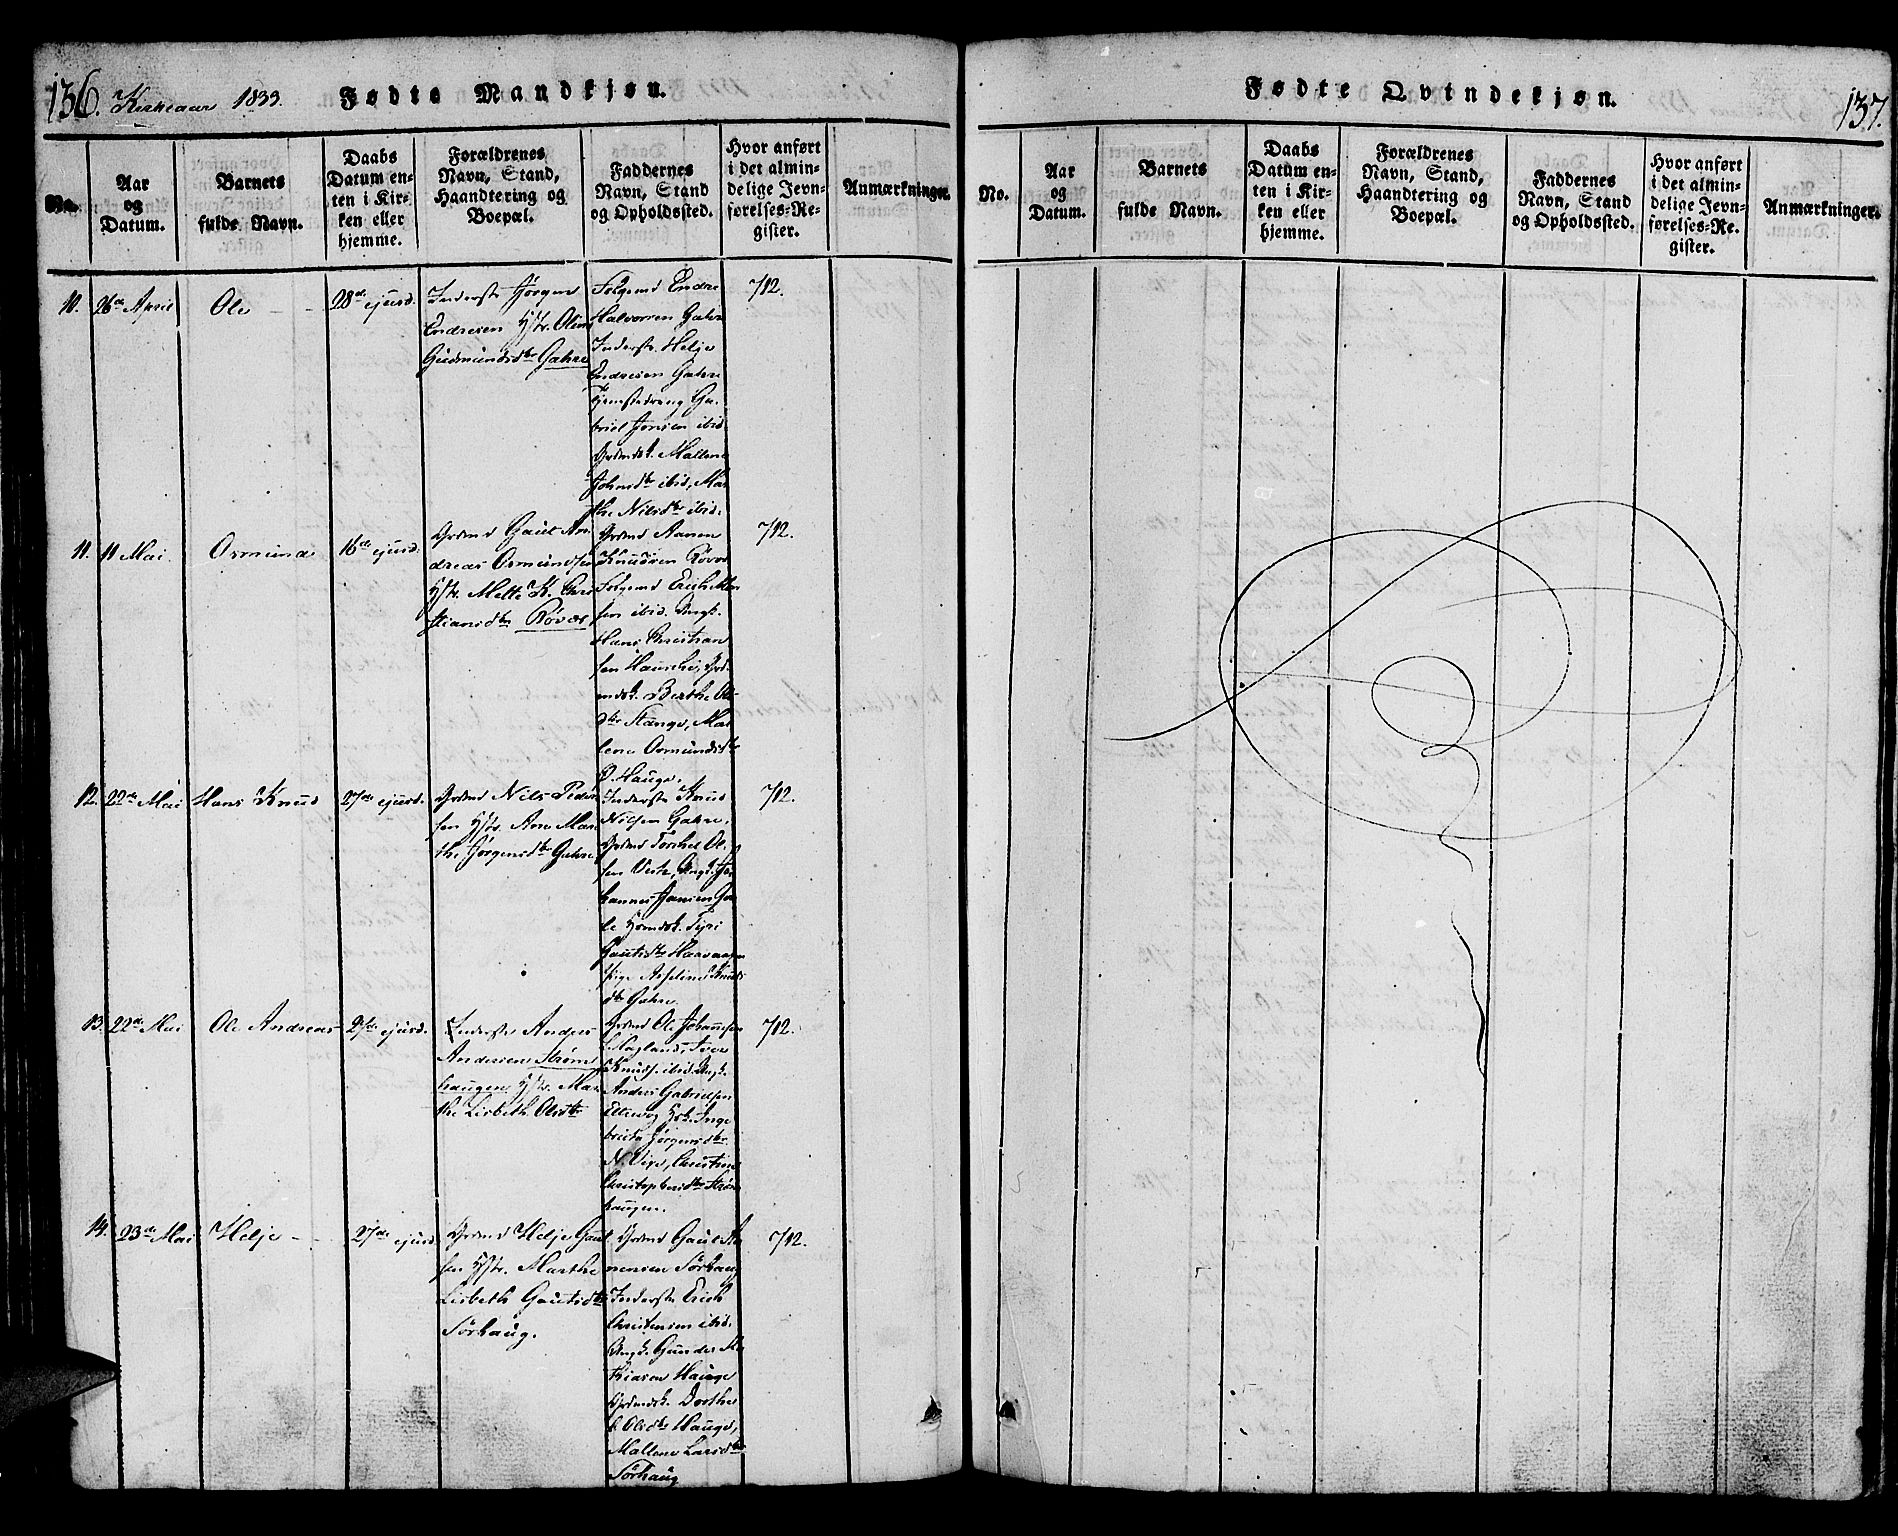 136. Kirkeaar 1833. Fødte Mandkjøn.
No.
Aar
og
Datum.
Barnets
fulde Navn.
Daabs
Datum en-
ten i Kir-
ken eller
hjemme.
Forældrenes
Navn, Stand,
Haandtering og
Boepæl.
Faddernes
Navn, Stand
og Opholdssted.
Hvor anført
i det almin-
delige Jevn-
førelses-Re-
gister.
Anmærkninger.
10. 26de April
Ole
28de ejusd.
Inderste Jørgen
Endresen Hstr. Olin
Gudmundsdtr Gahre
Folgemd Endre
Halvorsen Gahre
Inderst. Helje
Endresen Gahre
Tjenestedreng Ga-
briel Jonsen ibid.
Grdmdsk. Mallene
Johnsdtr ibid, Mar
the Nilsdtr ibid.
712.
11. 11 Mai.
Osmund
16de ejusd.
Grdmd Gaut An
dreas Osmundsen
Hstr. Mette K. Chri
stiansdtr Røvær
Grdmd Aanen
Knudsen Røvær
Folgemd Erich
sen ibid. Ungk.
Hans Christian
sen Hauske, Grd-
mdsk. Berthe Ols-
dtr Stange, Mal
lene Osmundsdtr
Ø. Hauge.
712.
12. 22de Mai
Hans Knud
27de ejusd.
Grdmd Nils Peder
sen Hstr. Ane Mar
the Jørgensdtr Gahre
Inderste Knud
Nilsen Gahre,
Grdmd Torchel Ol-
sen Vestr, Ungk. Jo-
hannes Jansen
Tyri
Gautsdtr
pige Asseline Knuds
dtr Gahre.
712.
13. 22de Mai
Ole Andreas
27de ejusd.
Inderste Anders
Andersen Strøm
haugen Hstr. Mar
the Lisbeth Olsdtr
Grdmd Ole Johannesen
Hagland, Iver
Knuds. ibid. Ungk.
Anders Gabrielsen
Inge
Jørgensdtr
N. Vige, Christine
Christophersdtr Strøm
haugen.
712.
14. 23de Mai
Helje
27de ejusd.
Grdmd Helje Gaut
sen Hstr. Marthe
Lisbeth Gautsdtr
Sörhaug.
Grdmd Gaut Aa
nensen Sörhaug
Inderste Erich
Christensen ibid.
Ungk. Gunder
Hauge
Grdmdsk. Dorthe
Olsdtr Hauge,
Mallene Larsdtr
Sörhaug
712.
Fødte Qvindekjøn. 137.
No.
Aar
og
Datum.
Barnets
fulde Navn.
Daabs
Datum en-
ten i Kir-
ken eller
hjemme.
Forældrenes
Navn, Stand,
Haandtering og
Boepæl.
Faddernes
Navn, Stand
og Opholdssted.
Hvor anført
i det almin-
delige Jevn-
førelses-Re-
gister.
Anmærkninger.